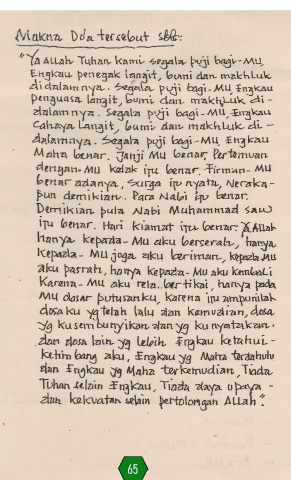 Makna Do'a tersebut sbb:
"Ya Allah Tuhan kami segala puji bagi-Mu
Engkau penegak langit, bumi dan makhluk
didalamnya. Segala puji bagi-Mu, Engkau
penguasa langit, bumi dan makhluk di-
dalamnya. Segala puji bagi-Mu, Engkau
Cahaya Langit, bumi dan makhluk di-
dalamnya. Segala puji bagi-Mu, Engkau
Maha benar. Janji Mu benar, Pertemuan
dengan-Mu kelak itu benar. Firman-Mu
benar adanya, Surga itu nyata, Neraka-
pun demikian. Para Nabi itu benar.
Demikian pula Nabi Muhammad saw
itu benar. Hari kiamat itu benar. Ya Allah
hanya kepada-Mu aku berserah, hanya
kepada-Mu juga aku beriman, kepada Mu
aku pasrah, hanya kepada-Mu aku kembali
Karena-Mu aku rela bertikai, hanya pada
Mu dasar putusanku, karena itu ampunilah
dosaku yg telah lalu dan kemudian, dosa
yg kusembunyikan dan yg ku nyatakan.
dan dosa lain yg lebih Engkau ketahui-
ketimbang aku, Engkau yg Maha terdahulu
dan Engkau yg Maha terkemudian, Tiada
Tuhan selain Engkau, Tiada daya upaya-
dan kekuatan selain pertolongan Allah".
65